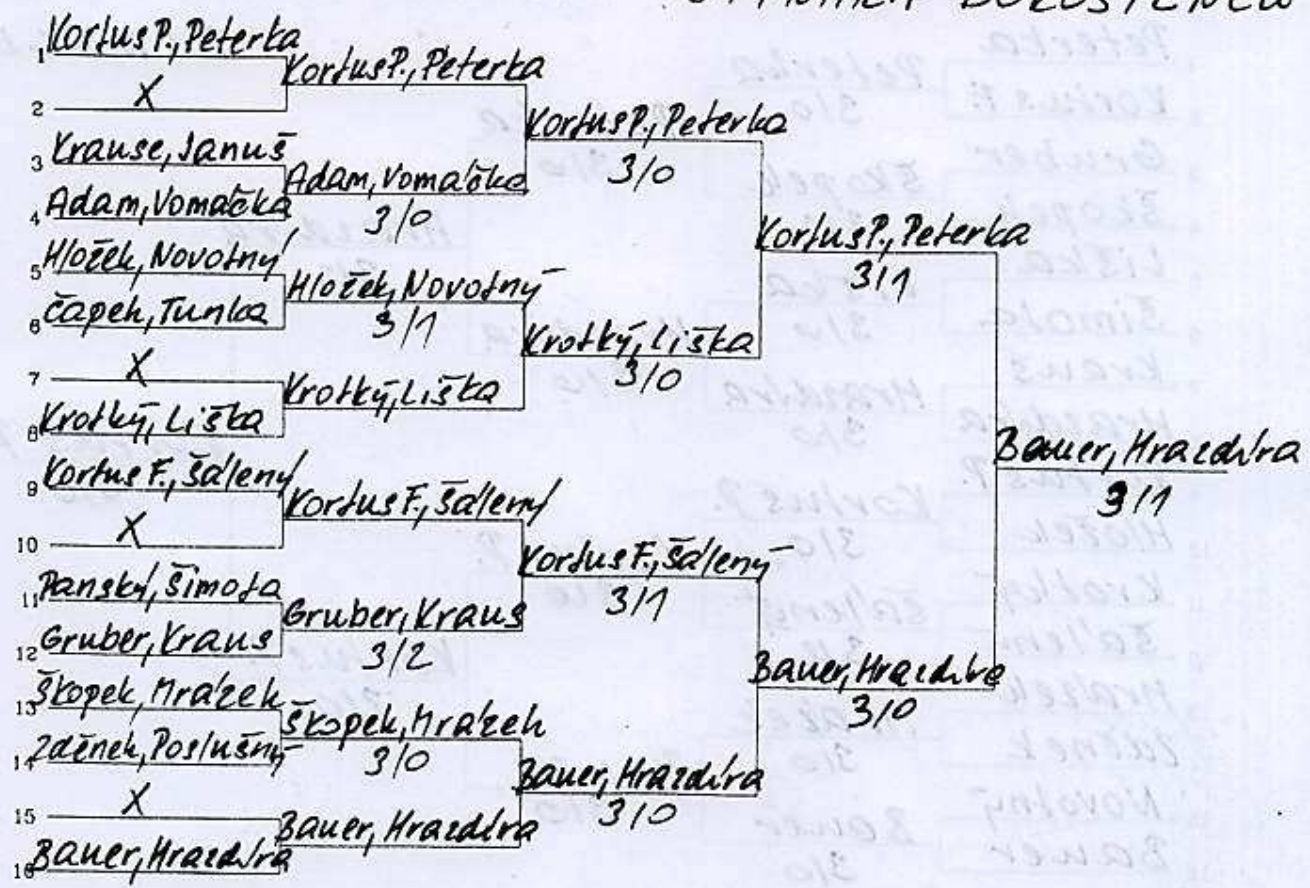 DOROSTENCŮ
1 Kortus P., Peterka
2 X
3 Krause, Januš
4 Adam, Vomáčka
5 Hložek, Novotný
6 Čapek, Tunka
7 X
8 Krotký, Liška
9 Kortus F., Šálený
10 X
11 Panský, Šimota
12 Gruber, Kraus
13 Škopek, Mrázek
14 Zděnek, Poslušný
15 X
16 Bauer, Hrazdíra
Kortus P., Peterka
Adam, Vomáčka
3/0
Hložek, Novotný
3/1
Krotký, Liška
Kortus F., Šálený
Gruber, Kraus
3/2
Škopek, Mrázek
3/0
Bauer, Hrazdíra
Kortus P., Peterka
3/0
Krotký, Liška
3/0
Kortus F., Šálený
3/1
Bauer, Hrazdíra
3/0
Kortus P., Peterka
3/1
Bauer, Hrazdíra
3/0
Bauer, Hrazdíra
3/1